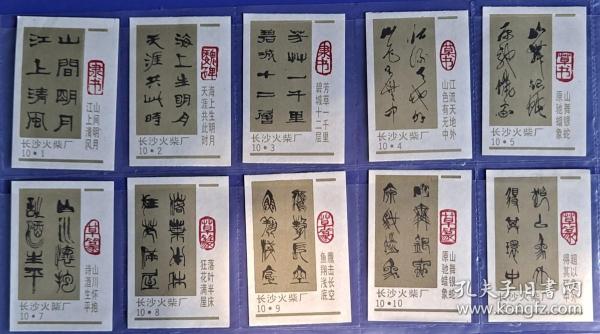 山間明月
江上清風
隶书
山间明月
江上清风
长沙火柴厂
10·1
海上生明月
天涯共此時
魏碑
海上生明月
天涯共此时
长沙火柴厂
10·2
芳艸一千里
碧城十二層
隶书
芳草一千里
碧城十二层
长沙火柴厂
10·3
江流天地外
山色有无中
草书
江流天地外
山色有无中
长沙火柴厂
10·4
山舞银蛇
原驰蜡象
草书
山舞银蛇
原驰蜡象
长沙火柴厂
10·5
草篆
山川怀抱
诗酒生平
长沙火柴厂
10·7
草篆
落叶半床
狂花满屋
长沙火柴厂
10·8
草篆
鹰击长空
鱼翔浅底
长沙火柴厂
10·9
草篆
山舞银
原驰蜡象
长沙火柴厂
10·10
草篆
超以象外
得其环中
孔夫子旧书网
www.kongfz.com